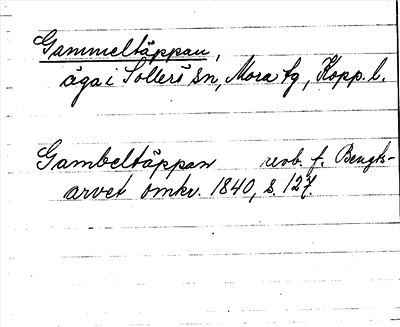 Gammeltäppan,
äga i Sollerö sn, Mora tg, Kopp. l.
Gambeltäppan urb. f. Bengts-
arvet omkr. 1840, s. 127.